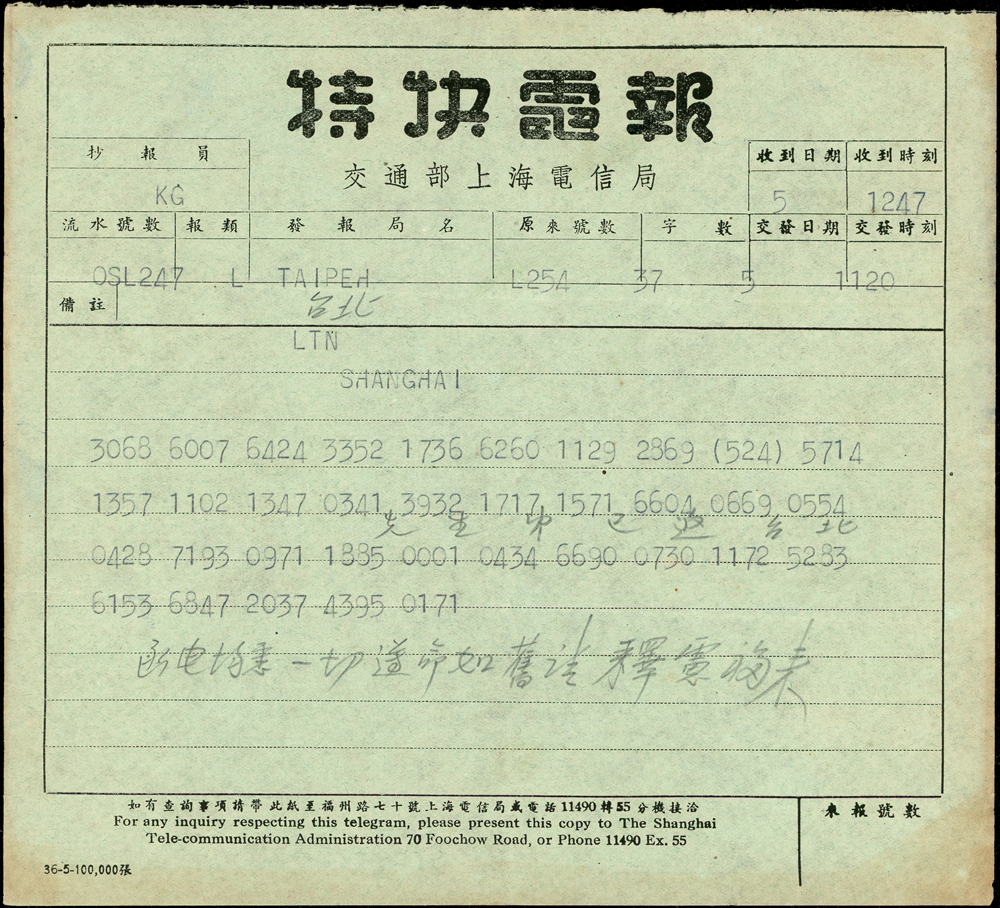 特快電報
交通部上海電信局
抄報員
KG
收到日期 收到時刻
5 1247
流水號數 報類 發報局名 原來號數 字數 交發日期 交發時刻
OSL247 L TAIPEH L254 37 5 1120
台北
備註
LTN
SHANGHAI
3068 6007 6424 3352 1736 6260 1129 2869 (524) 5714
1357 1102 1347 0341 3932 1717 1571 6604 0669 0554
先生 已 台北
0428 7193 0971 1885 0001 0434 6690 0730 1172 5283
6153 6847 2037 4395 0171
函电均悉一切遵命如舊請釋
如有查詢事項請帶此紙至福州路七十號上海電信局或電話11490轉55分機接洽
For any inquiry respecting this telegram, please present this copy to The Shanghai
Tele-communication Administration 70 Foochow Road, or Phone 11490 Ex. 55
來報號數
36-5-100,000張